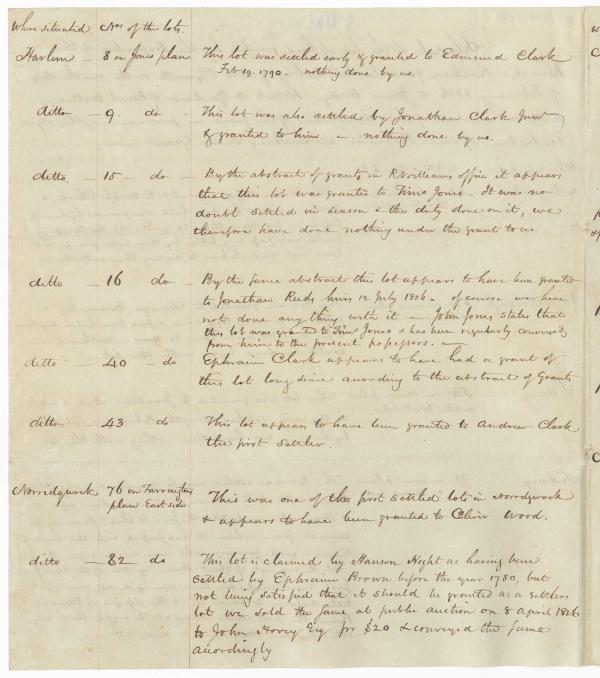 Where situated Nos of the lots.
Harlem - 8 on Jones plan This lot was settled early & granted to Edmund Clark
Feb 19. 1790. nothing done by us.
ditto - 9. do - This lot was also settled by Jonathan Clark Junr
& granted to him - nothing done by us.
ditto - 15 - do - By the abstract of grants in R Williams office it appears
that this lot was granted to Jones - It was no
doubt settled in season & the duty done on it, we
therefore have done nothing under the grant to us
ditto - 16 do - By the same abstract this lot appears to have been granted
to Jonathan heirs 12 July 1806 - of course we have
not done any thing with it - John Jones states that
this lot was granted to Jones & has been regularly conveyed
from him to the present possessors. -
ditto - 40 do Ephraim Clark appears to have had a grant of
this lot long since according to the abstract of Grants
ditto - 43 do This lot appears to have been granted to Andrew Clark
the first settler.
Norridgwock 76 on Farringtons
plan East side. This was one of the first settled lots in Norridgwock
& appears to have been granted to Oliver Wood.
ditto - 82 do This lot is claimed by Hanson Hight as having been
settled by Ephraim Brown before the year 1780, but
not being satisfied that it should be granted as a settlers
lot we sold the same at public auction on 8 april 1816
to John Hovey Esq for $20 & conveyed the same
accordingly